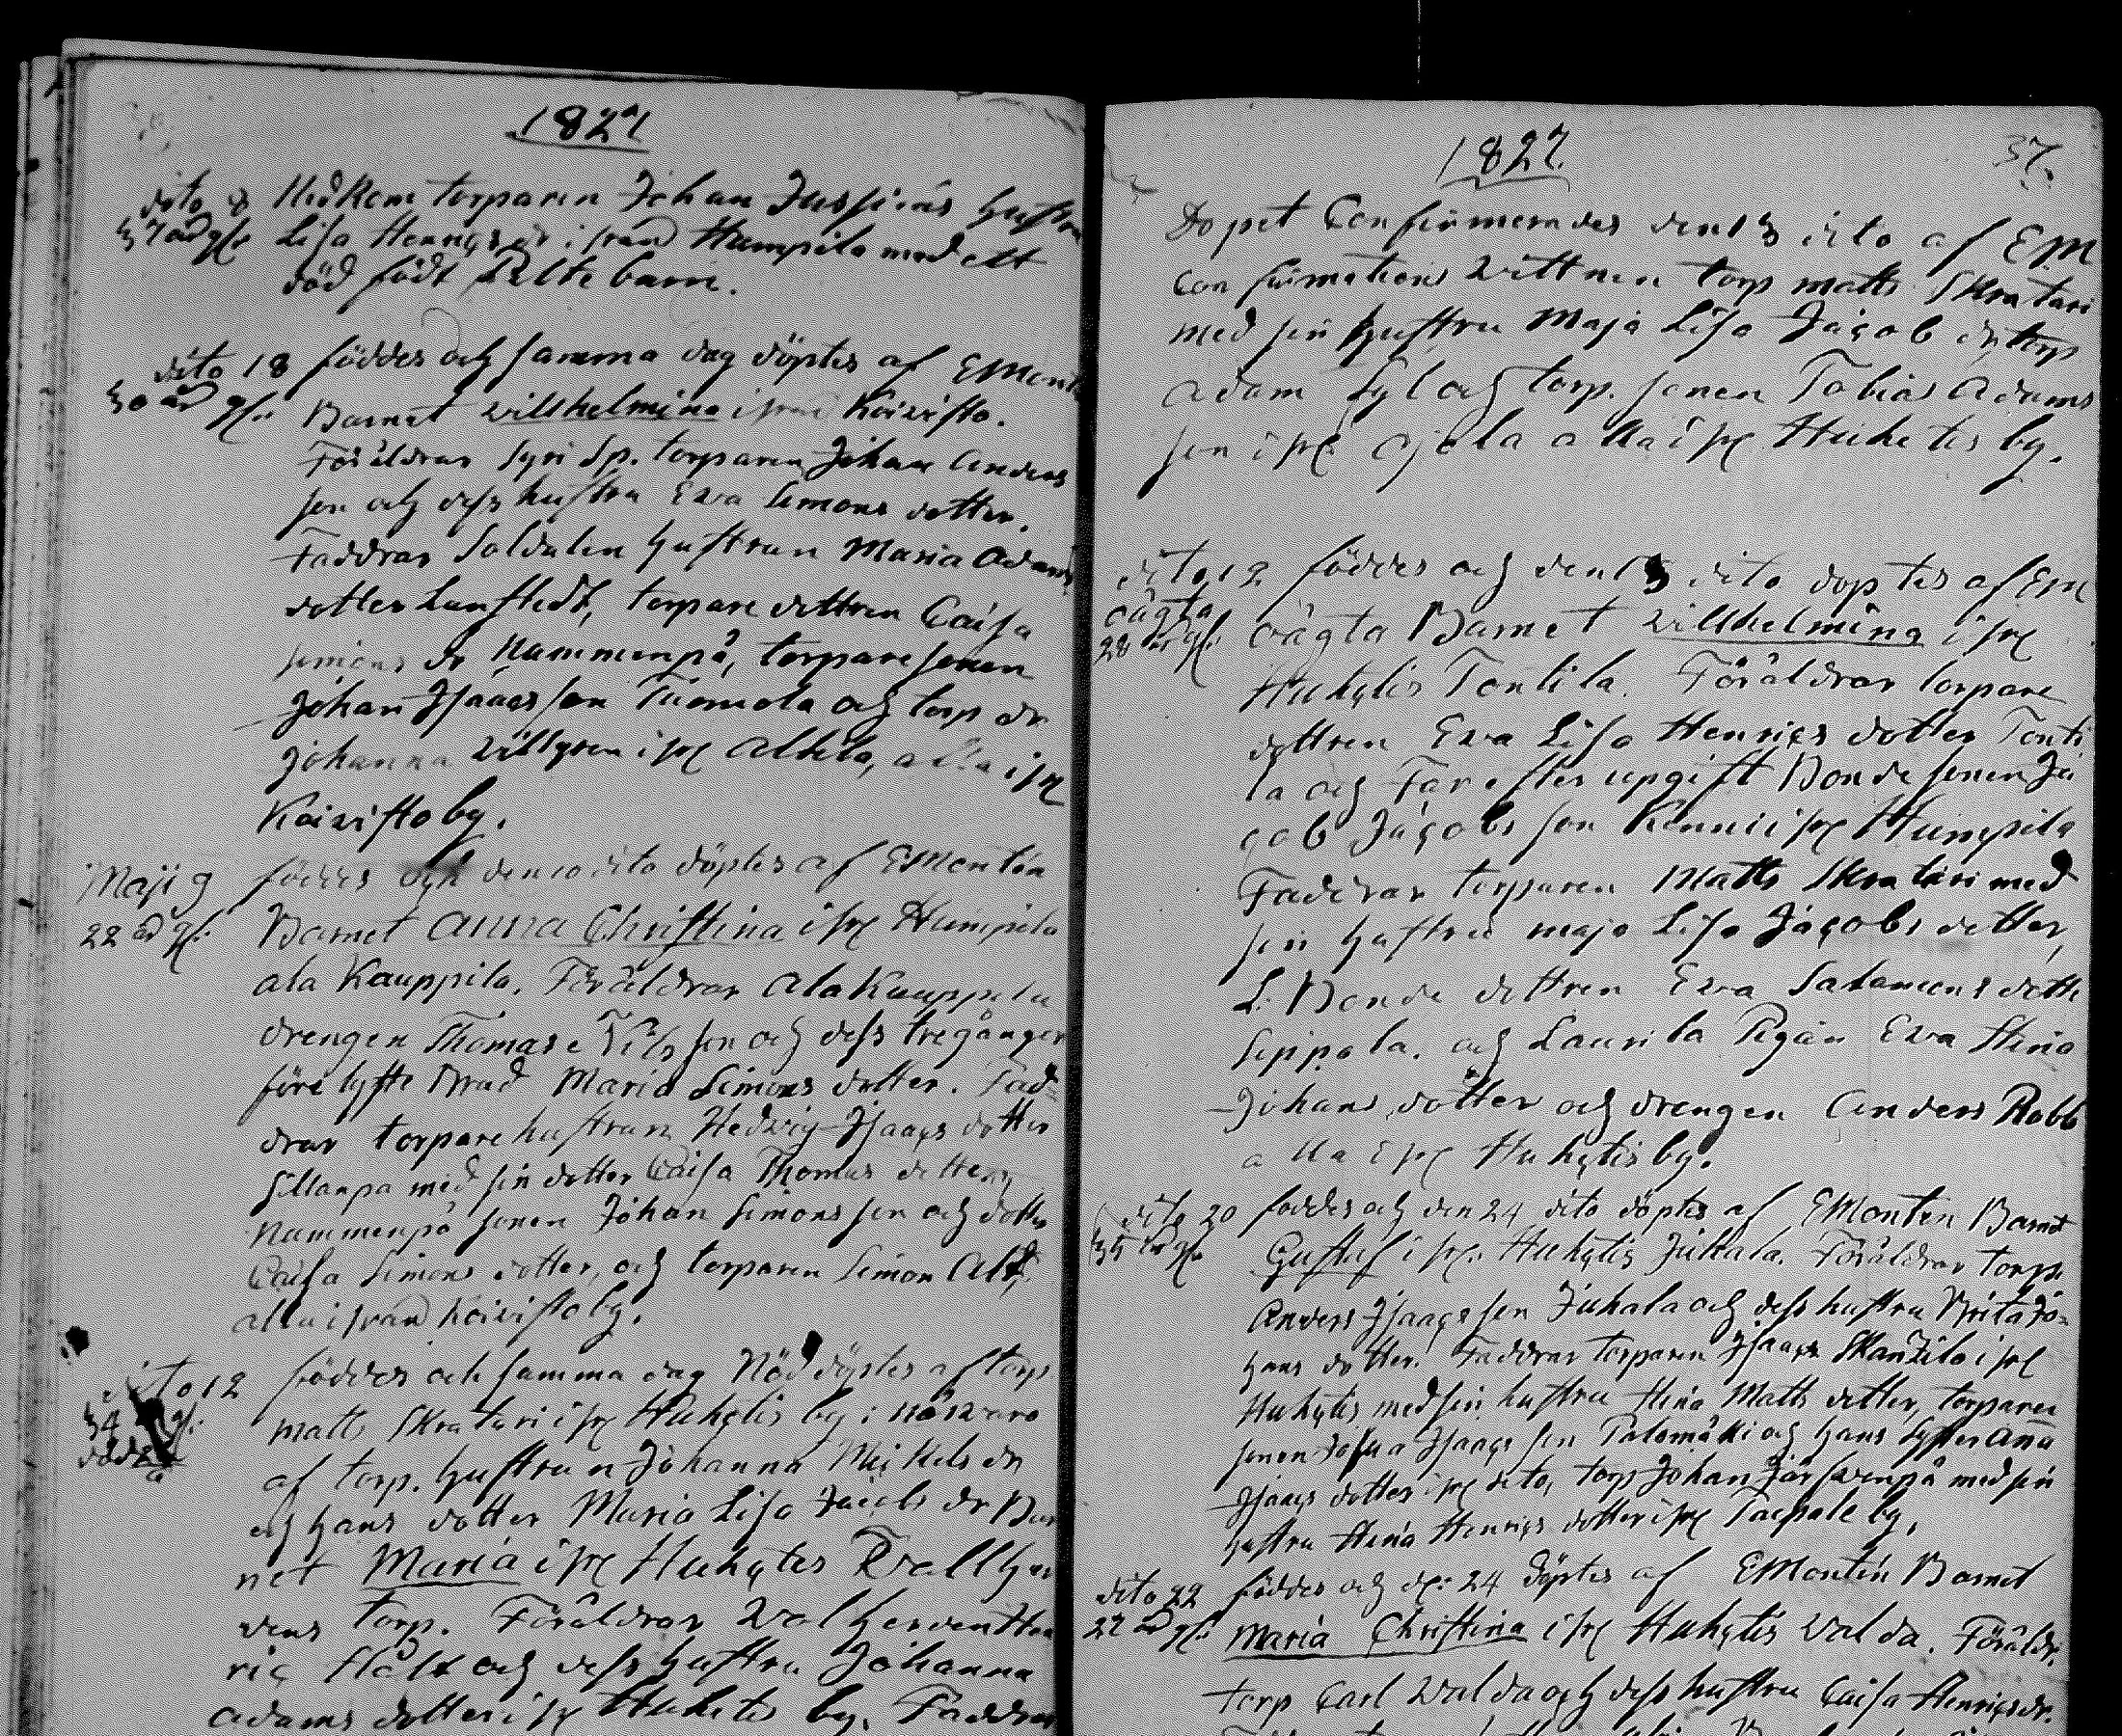 1827
dito 8 Nedkom torparen Johan Jussiens hustru
37 år gl: Lisa Henrics dr ifrån Humpila med ett
död födt barn.
dito 18 föddes och samma dag döptes af EMontin
30 år gl: Barnet Willhelmina ifrån Koivisto.
Föräldrar torparen Johan Anders
son och dess hustru Ewa Simons dotter.
Faddrar Soldaten hustrun Maria Adams
dotter torpare dottren Caisa
Simons dr Nummenpä, torpare sonen
Johan Isaacs son Tuomola och torp dr
Johanna Villgren ifr Alhola, alla ifr
Koivisto by.
Maji 9 föddes och den 10 dito döptes af EMontin
22 år gl: Barnet Anna Christina ifr Humpila
ala Kauppila. Föräldrar Ala Kauppila
drengen Thomas e Nils son och dess tregånger
före lyste Brud Maria Simons dotter. Fad=
drar torpare hustrun Hedvig Isaacs dotter
Sillanpä med sin dotter Caisa Thomas dotter
Nummenpä sonen Johan Simons son och dotter
Caisa Simons dotter, och torparen Simon Alt,
alla ifrån Koivisto by.
dito 12 föddes och samma dag Nöd döptes af torp
34 år gl: Matts Skratari ifr Huhtis by i närvaro
död
af torp. hustrun Johanna Michels dr
och hans dotter Maria Lisa Jacobs dr Bar
net Maria ifr Huhtis Vallher
dens torp. Föräldrar Valherden Hen
ric Stålt och dess hustru Johanna
Adams dotter ifr Huhtis by. Faddrar
1827.
37.
Dopet Confirmerades den 13 dito af EM
Confirmations Vittnen torp Matts Skratari
med sin hustru Maja Lisa Jacobs dr, torp
Adam Syl och torp. sonen Tobias Adams
son ifr Ojala alla ifr Huhtis by.
dito 12 föddes och den 13 dito döptes af EM
oägta
28 år gl: oägta Barnet Willhelmina ifr
Huhtis Tontila. Föräldrar torpare
dottren Ewa Lisa Henrics dotter Tonti
la och Far efter upgift Bonde sonen Ja
cob Jacobs son Kenni ifr Humpila
Faddrar torparen Matts Skratari med
sin hustru Maja Lisa Jacobs dotter,
L: Bonde dottren Ewa Salamons dotter
Seppala. och Laurila Pigan Ewa Stina
Johans dotter och drengen Anders Rabb
alla ifr Huhtis by.
dito 20 föddes och den 24 dito döptes af EMontin Barnet
35 år gl: Gustaf ifr: Huhtis Juhala. Föräldrar torp.
Anders Isaacs son Juhala och dess hustru Brita Jo=
hans dotter. Faddrar torparen Isaac Skanzila ifr
Huhtis med sin hustru Stina Matts dotter, torpare
sonen Josua Isaacs son Palomäki och hans Syster Anna
Isaacs dotter ifr dito, torp Johan Järfvenpä med sin
hustru Stina Henrics dotter ifr Taipale by.
dito 22 föddes och d: 24 döptes af EMontin Barnet
27 år gl: Maria Christina ifr Huhtis Valda. Föräldr.
torp Carl Valda och dess hustru Caisa Henrics dr.